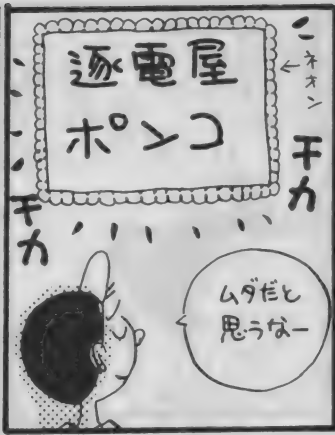 逐電屋
ポンコ
←ネオン
チカ
チカ
ムダだと
思うなー